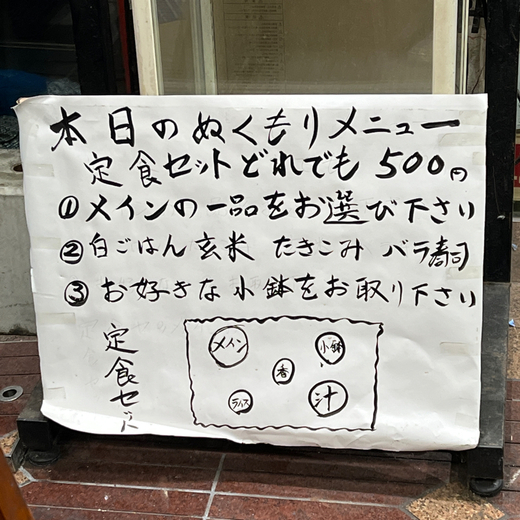 本日のぬくもりメニュー
定食セットどれでも500円
①メインの一品をお選び下さい
②白ごはん 玄米 たきこみ バラ寿司
③お好きな小鉢をお取り下さい
定食セット
メイン
小鉢
香
ライス
汁